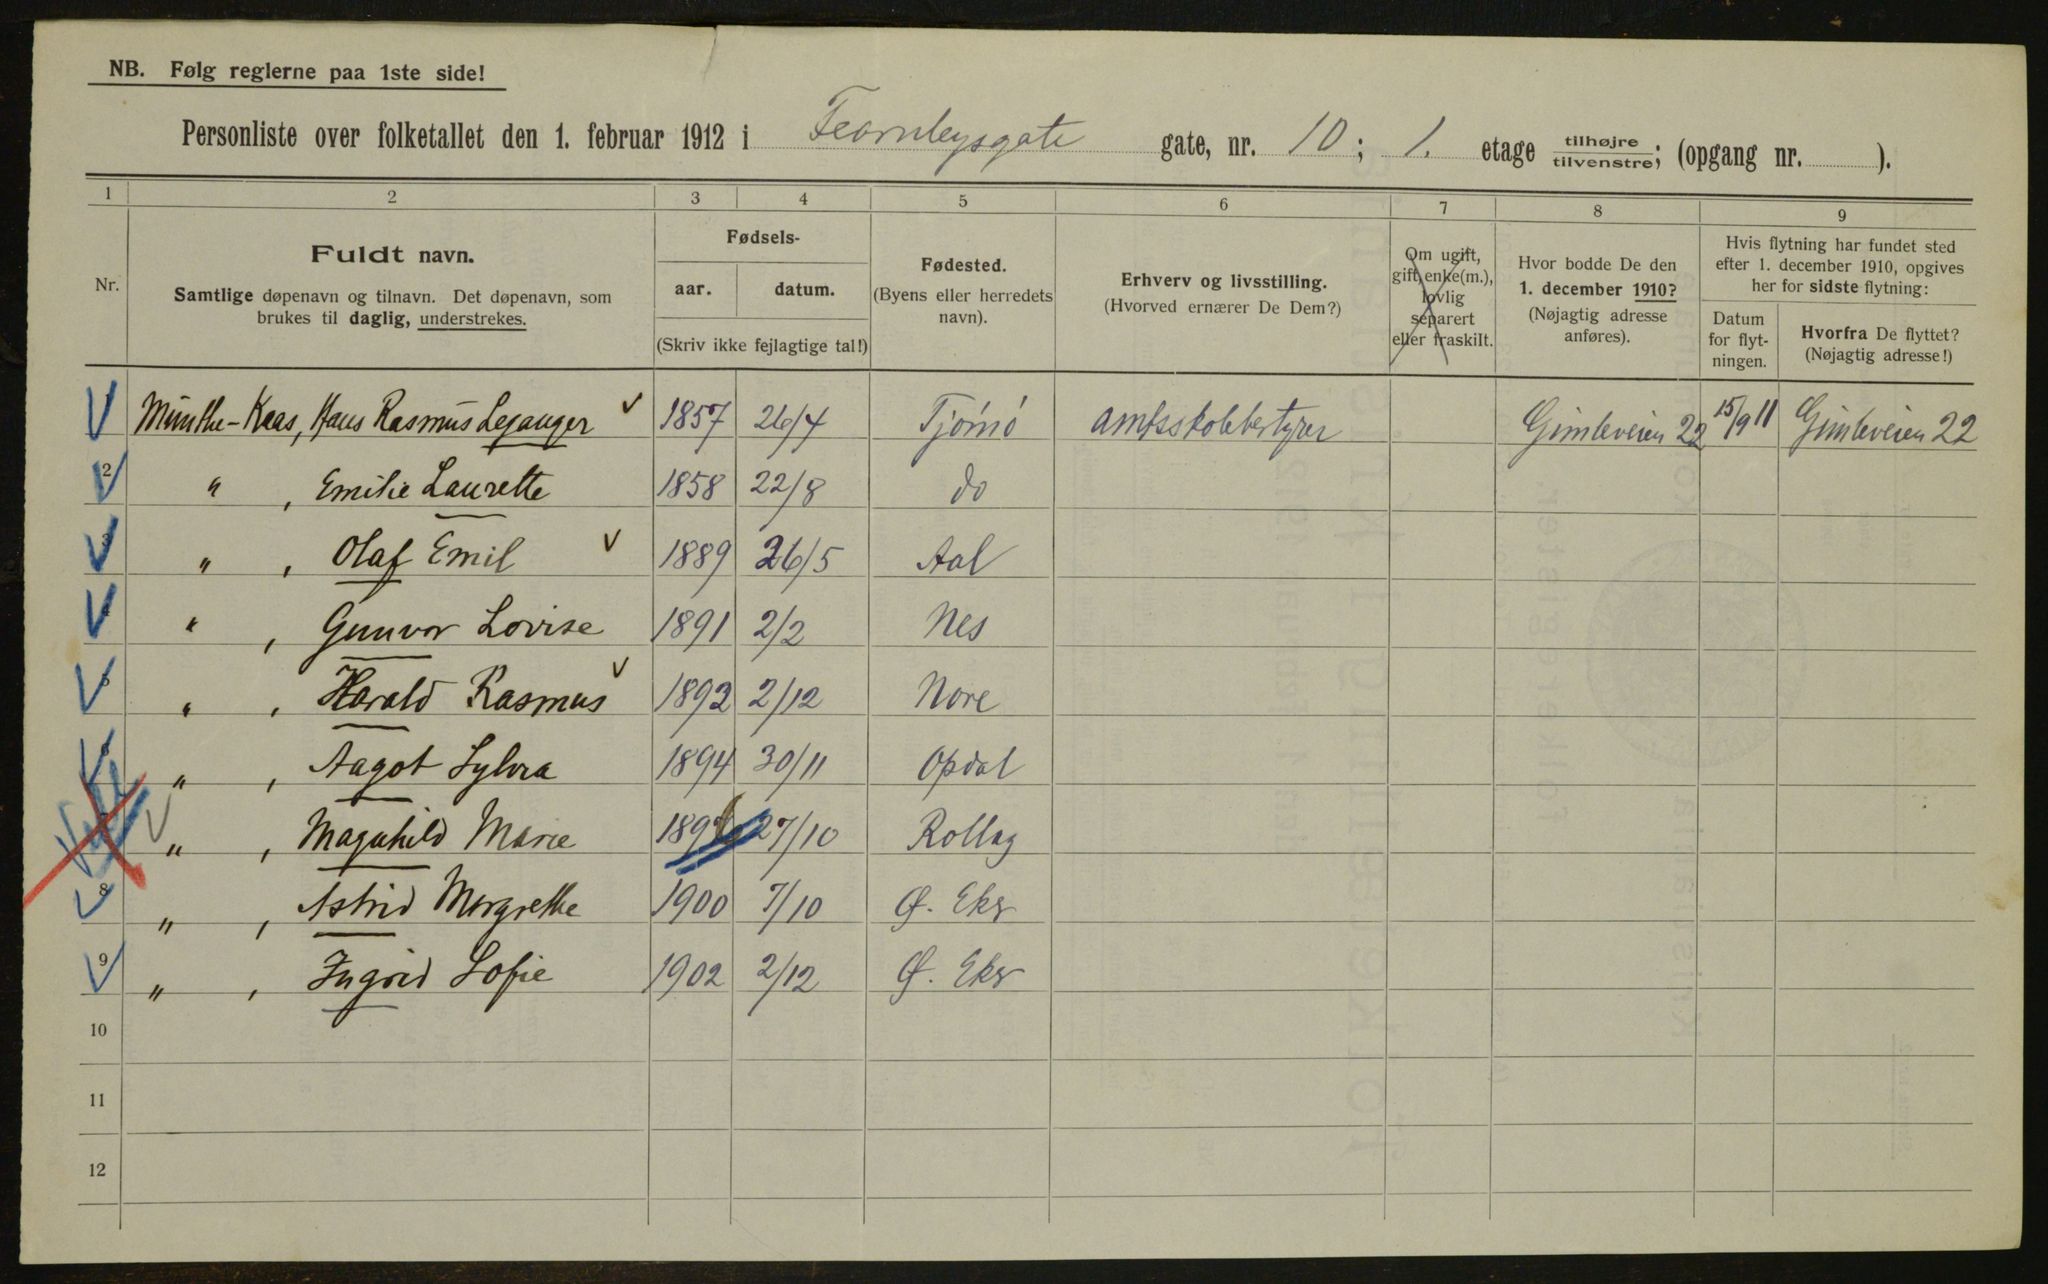 NB. Følg reglerne paa 1ste side!
Personliste over folketallet den 1. februar 1912 i Fearnleysgate gate, nr. 10; 1. etage tilhøjre tilvenstre; (opgang nr. ).
1 2 3 4 5 6 7 8 9
Nr.
Fuldt navn.
Samtlige døpenavn og tilnavn. Det døpenavn, som
brukes til daglig, understrekes.
Fødsels-
aar. datum.
(Skriv ikke fejlagtige tal!)
Fødested.
(Byens eller herredets
navn).
Erhverv og livsstilling.
(Hvorved ernærer De Dem?)
Om ugift,
gift, enke(m.),
lovlig
separert
eller fraskilt.
Hvor bodde De den
1. december 1910?
(Nøjagtig adresse
anføres).
Hvis flytning har fundet sted
efter 1. december 1910, opgives
her for sidste flytning:
Datum
for flyt-
ningen.
Hvorfra De flyttet?
(Nøjagtig adresse!)
1 Munthe-Kaas, Hans Rasmus Leganger 1857 26/4 Tjömö amtsskolebestyrer Gimleveien 22 15/9 11 Gimleveien 22
2 " , Emilie Laurette 1858 22/8 do
3 " , Olaf Emil 1889 26/5 Aal
4 " , Gunvor Lovise 1891 2/2 Nes
5 " , Harald Rasmus 1892 2/12 Nore
6 " , Aagot Sylvia 1894 30/11 Opdal
" , Magnhild Marie 27/10 Rollag
8 " , Astrid Margrethe 1900 7/10 Ø. Eker
9 " , Ingrid Sofie 1902 2/12 Ø. Eker
10
11
12